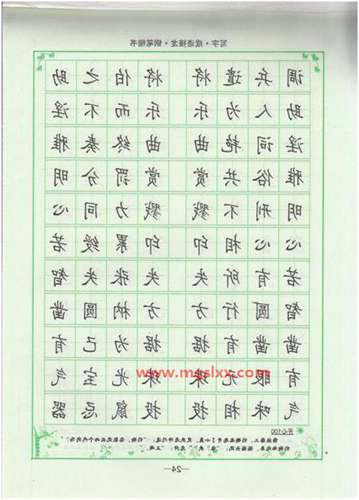 写字·成语接龙·钢笔楷书
调兵遣将 将伯之助
助人为乐 乐而不淫
淫词艳曲 曲终奏雅
雅俗共赏 赏罚分明
明刑不戮 戮力同心
心心相印 印累绶若
若有所失 失张失智
智圆行方 方枘圆凿
凿凿有据 据为己有
有眼无珠 珠光宝气
气味相投 投鼠忌器
www.mqslxx.com
开心100
—24—